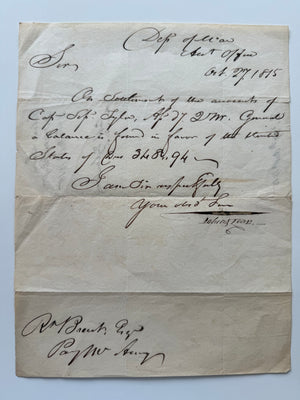 Dep. of War
Acct Office
Oct. 27 1815
Sir,
On Settlement of the accounts of
Cap. Sep. Tyler, A. D. Q. M. General
a balance is found in favor of the United
States of Doe 348.94
I am Sir respectfully
Your obt Ser
Rt Brent Esqr
Pay Mr Army